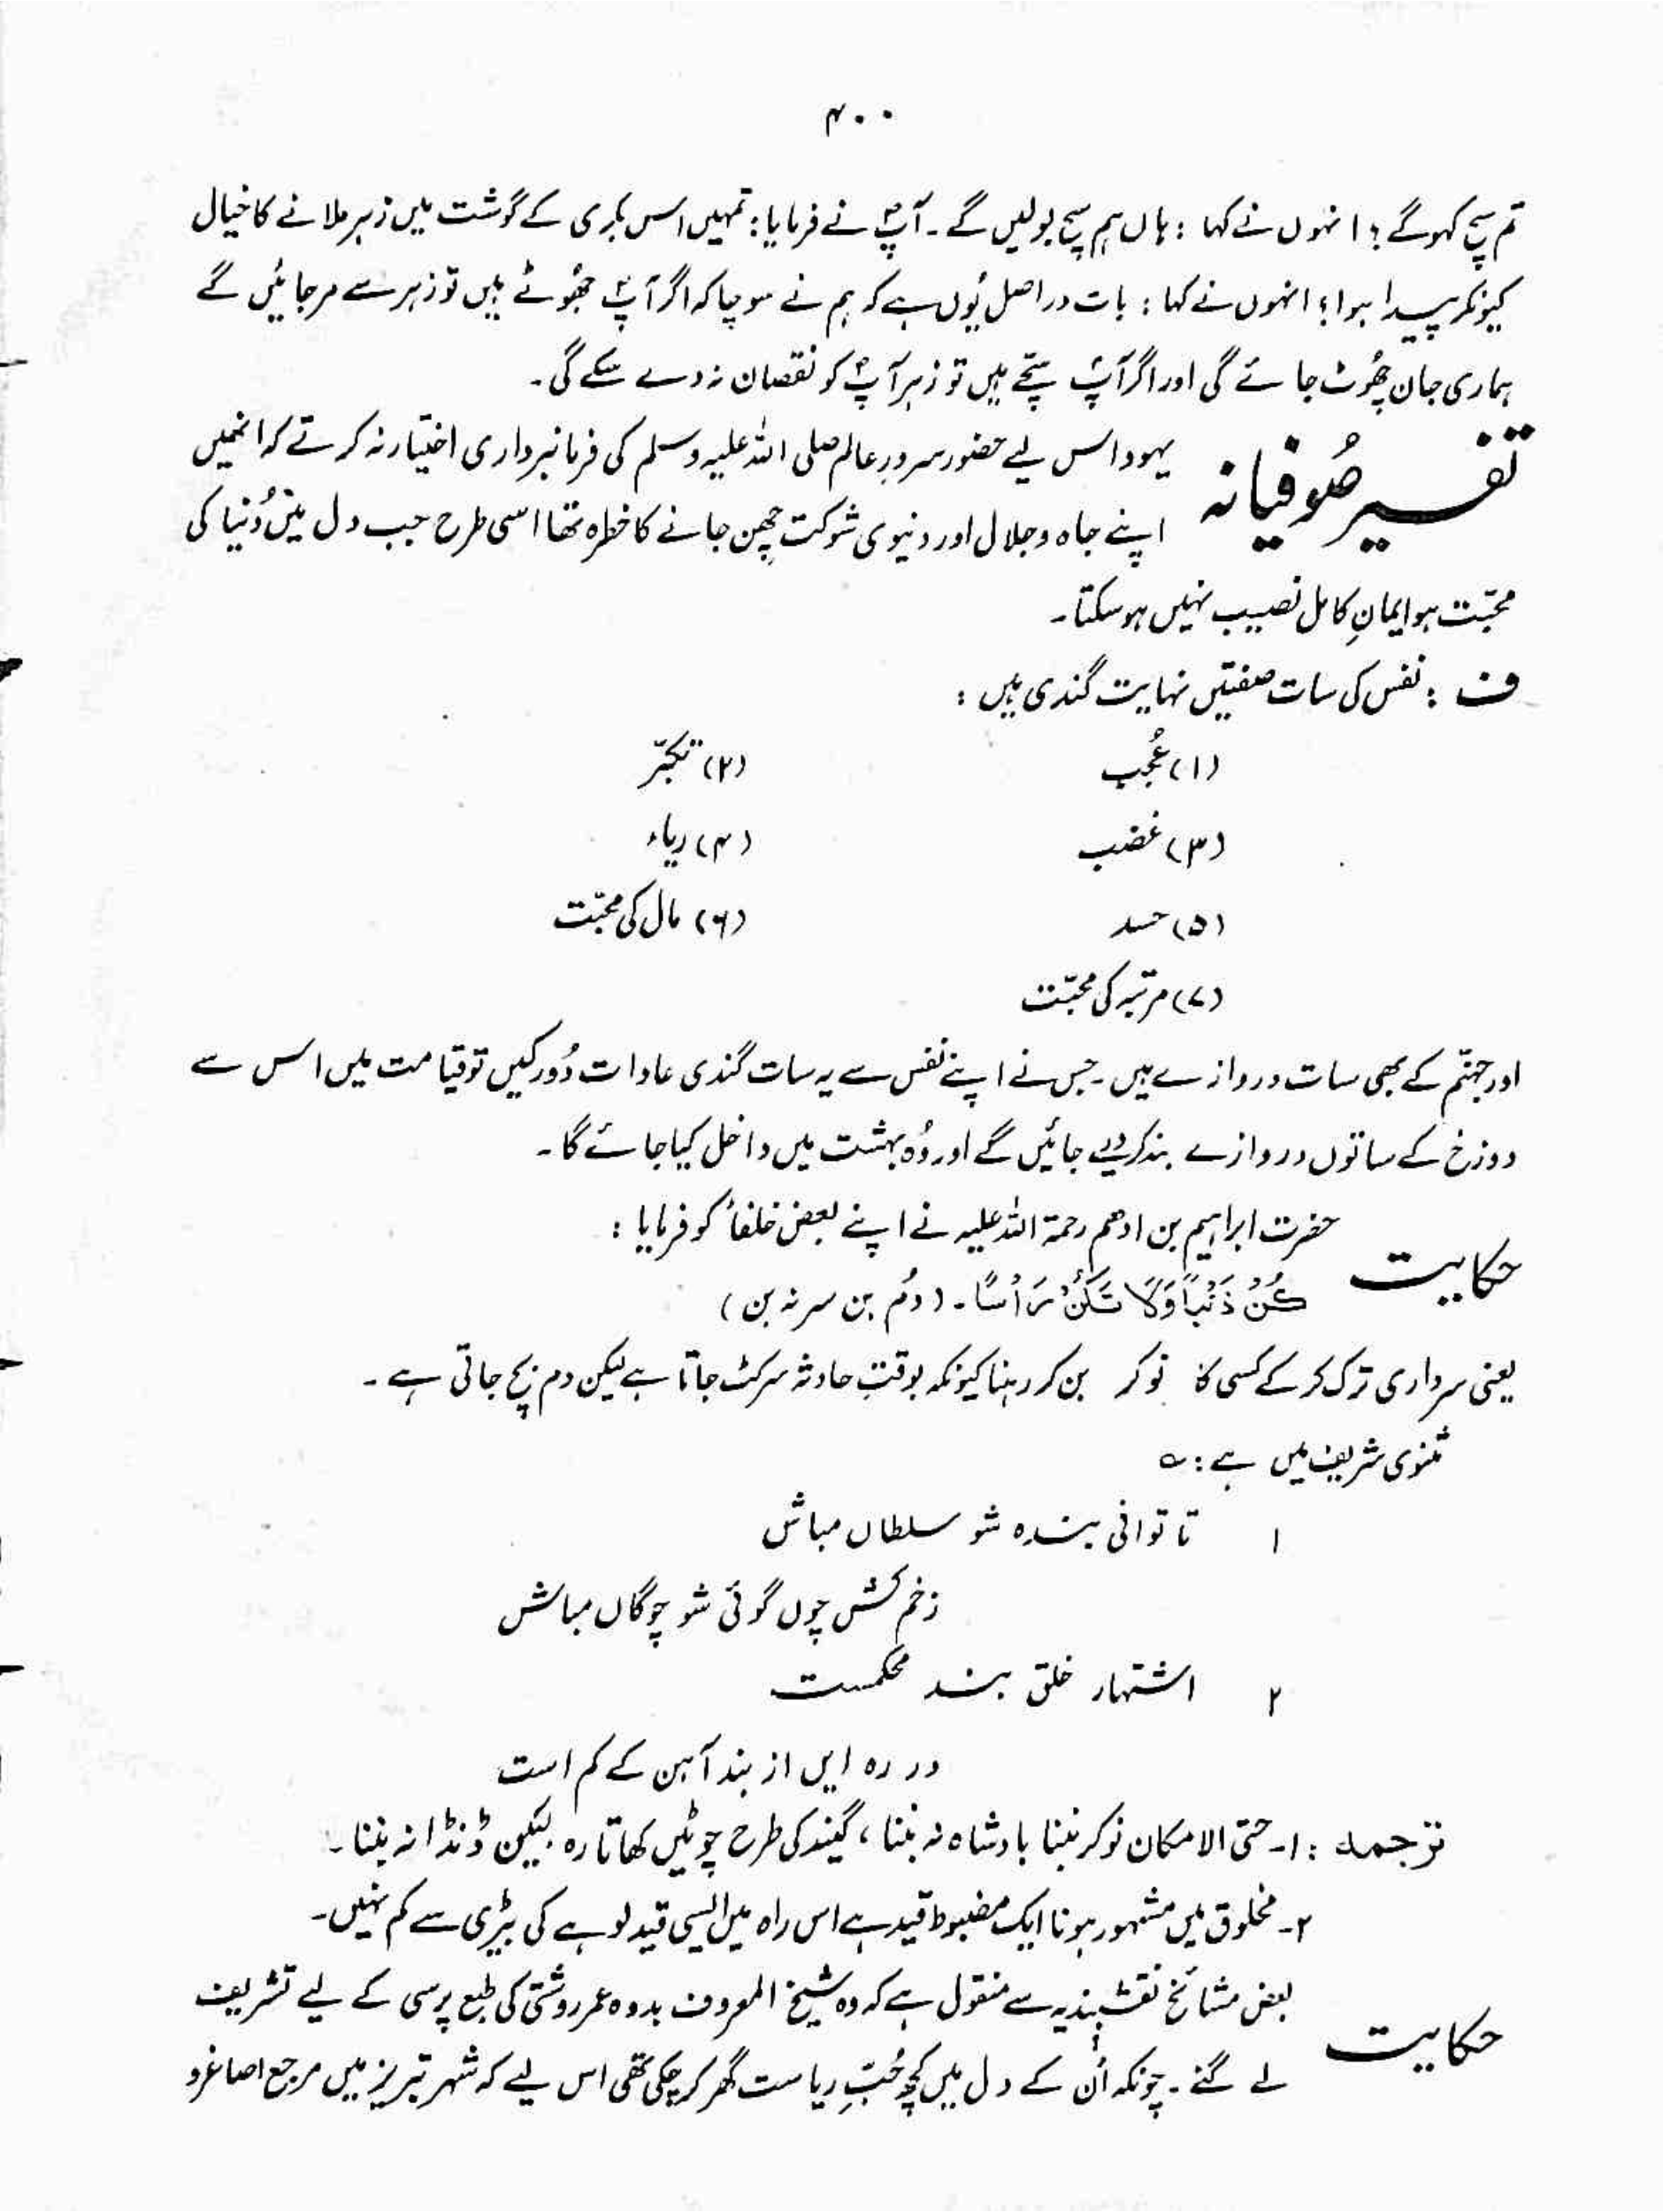 ۴۰۰
تم سچ کہو گے؟ انہوں نے کہا : ہاں ہم سچ بولیں گے۔ آپؐ نے فرمایا: تمہیں اس بکری کے گوشت میں زہر ملانے کا خیال
کیونکر پیدا ہوا؟ انہوں نے کہا : بات دراصل یُوں ہے کہ ہم نے سوچا کہ اگر آپؐ جھُوٹے ہیں تو زہر سے مرجائیں گے
ہماری جان چھُوٹ جائے گی اور اگر آپؐ سچّے ہیں تو زہر آپؐ کو نقصان نہ دے سکے گی۔
تفسیر صُوفیانہ یہود اس لیے حضور سرورِ عالم صلی اللہ علیہ وسلم کی فرمانبرداری اختیار نہ کرتے کہ انھیں
اپنے جاہ و جلال اور دنیوی شوکت چھِن جانے کا خطرہ تھا اسی طرح جب دل میں دُنیا کی
محبّت ہو ایمانِ کامل نصیب نہیں ہوسکتا۔
ف : نفس کی سات صفتیں نہایت گندی ہیں :
(۱) عُجب (۲) تکبّر
(۳) غضب (۴) ریاء
(۵) حسد (۶) مال کی محبّت
(۷) مرتبہ کی محبّت
اور جہنّم کے بھی سات دروازے ہیں۔ جس نے اپنے نفس سے یہ سات گندی عادات دُور کیں تو قیامت میں اس سے
دوزخ کے ساتوں دروازے بند کردیے جائیں گے اور وُہ بہشت میں داخل کیا جائے گا۔
حکایت حضرت ابراہیم بن ادھم رحمۃ اللہ علیہ نے اپنے بعض خلفأ کو فرمایا :
كُنْ ذَنْبًا وَّلَا تَكُنْ رَأْسًا۔ (دُم بن سر نہ بن)
یعنی سرداری ترک کر کے کسی کا نوکر بن کر رہنا کیونکہ بوقتِ حادثہ سر کٹ جاتا ہے لیکن دم بچ جاتی ہے۔
مثنوی شریف میں ہے : ؎
۱ تا توانی بندہ شو سلطاں مباش
زخم کش چوں گوئی شو چوگاں مباش
۲ اشتہار خلق بند محکمست
در رہ ایں از بند آہن کے کم است
ترجمہ : ۱۔ حتی الامکان نوکر بننا بادشاہ نہ بننا، گیند کی طرح چوٹیں کھاتا رہ لیکن ڈنڈا نہ بننا۔
۲۔ مخلوق میں مشہور ہونا ایک مضبوط قید ہے اس راہ میں ایسی قید لوہے کی بیڑی سے کم نہیں۔
حکایت بعض مشائخ نقشبندیہ سے منقول ہے کہ وہ شیخ المعروف بدوہ عمر روشنی کی طبع پرسی کے لیے تشریف
لے گئے۔ چونکہ اُن کے دل میں کچھ حُبِّ ریاست گھر کر چکی تھی اس لیے کہ شہر تبریز میں مرجع اصاغر و